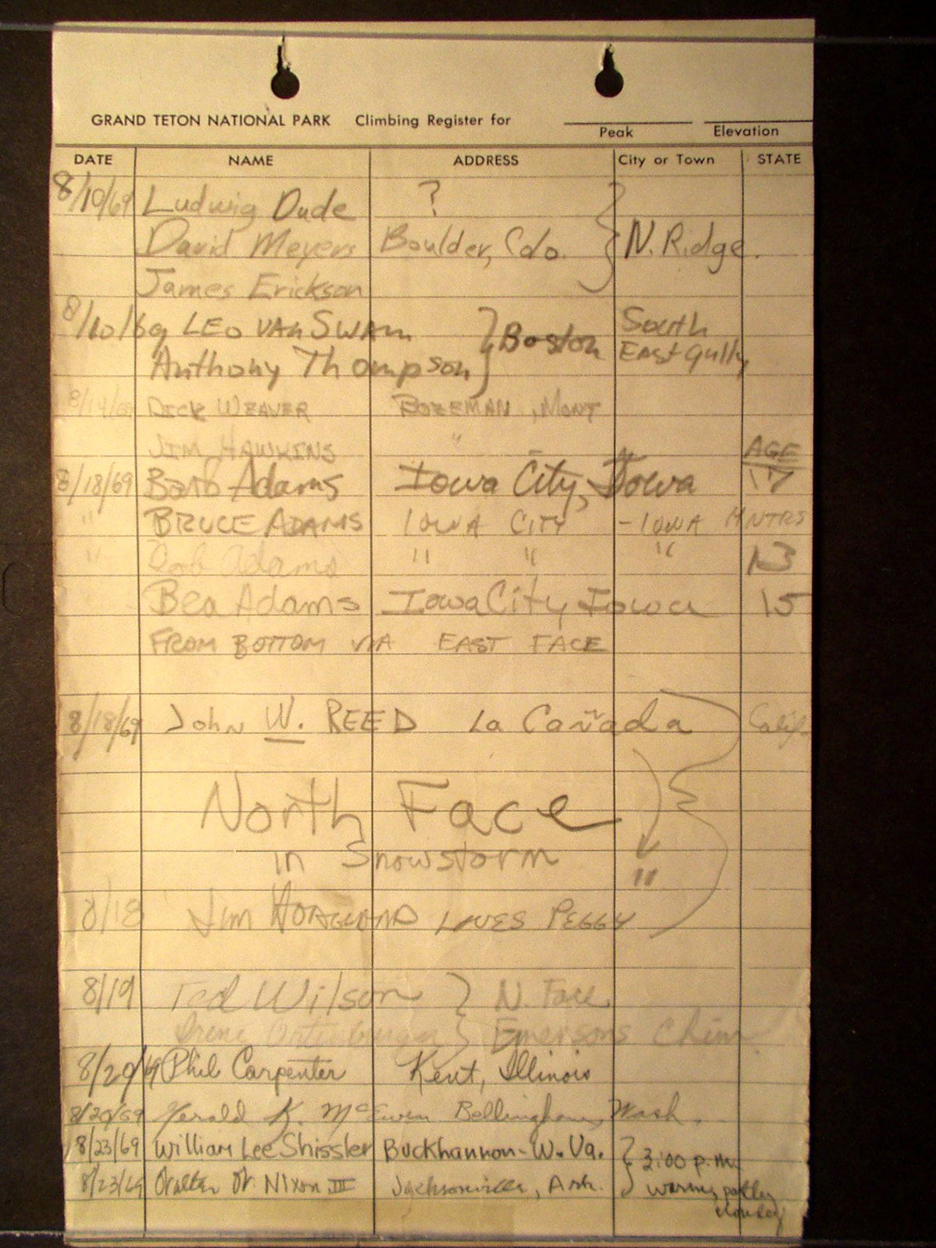 GRAND TETON NATIONAL PARK Climbing Register for
Peak Elevation
DATE NAME ADDRESS City or Town STATE
8/10/69 Ludwig Dude ?
David Meyers Boulder, Colo. N. Ridge.
James Erickson
8/10/69 LEO VAN SWAM Boston South
Anthony Thompson East Gully
8/14/69 DICK WEAVER BOZEMAN, MONT
JIM HAWKINS " AGE
8/18/69 Barb Adams Iowa City, Iowa 17
" BRUCE ADAMS IOWA CITY - IOWA
" Bob Adams " " " 13
Bea Adams Iowa City, Iowa 15
FROM BOTTOM VIA EAST FACE
8/18/69 John W. REED La Cañada Calif.
North Face
in Snowstorm
"
8/18 Jim LOVES PEGGY
8/19 Ted Wilson N. Face
Irene Ortenburger Emersons Chim
8/20/69 Phil Carpenter Kent, Illinois
8/20/69 Gerald K. McEwen Bellingham, Wash.
8/23/69 William Lee Shissler Buckhannon - W. Va. 3:00 p.m.
8/23/69 Walter W. Nixon III Jacksonville, Ark. warm, partly
cloudy